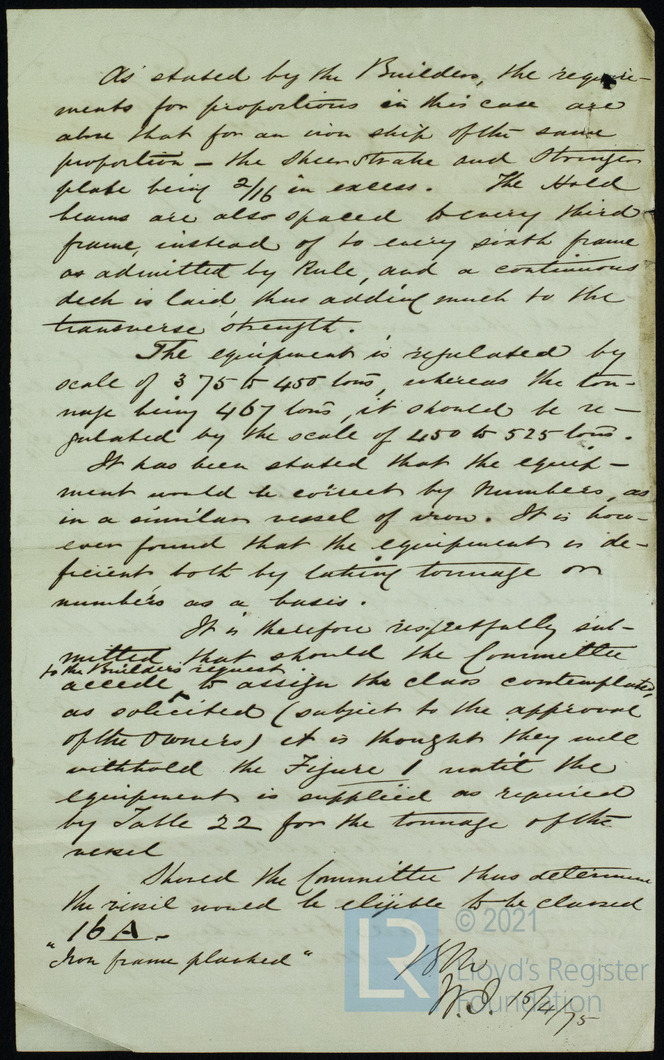 As stated by the Builders, the require-
ments for proportions in this case are
above that for an iron ship of the same
proportion – the Sheerstrake and Stringer
plate being 2/16 in excess. The Hold
beams are also spaced to every third
frame, instead of to every sixth frame
as admitted by Rule, and a continuous
deck is laid thus adding much to the
transverse strength.
The equipment is regulated by
scale of 375 to 450 tons, whereas the ton-
nage being 467 tons, it should be re-
gulated by the scale of 450 to 525 tons.
It has been stated that the equip-
ment would be correct by Numbers, as
in a similar vessel of iron. It is how-
ever found that the equipment is de-
ficient both by taking tonnage or
numbers as a basis.
It is therefore respectfully sub-
mitted that should the Committee
to the Builders request.
accede to assign the class contemplated,
as solicited (subject to the approval
of the Owners) it is thought they will
withhold the Figure 1 until the
equipment is supplied as required
by Table 22 for the tonnage of the
vessel
Should the Committee thus determine
the vessel would be eligible to be classed
16 A.
"Iron frame planked"
W.J. 15/4/75
© 2021
LR
Lloyd's Register
Foundation